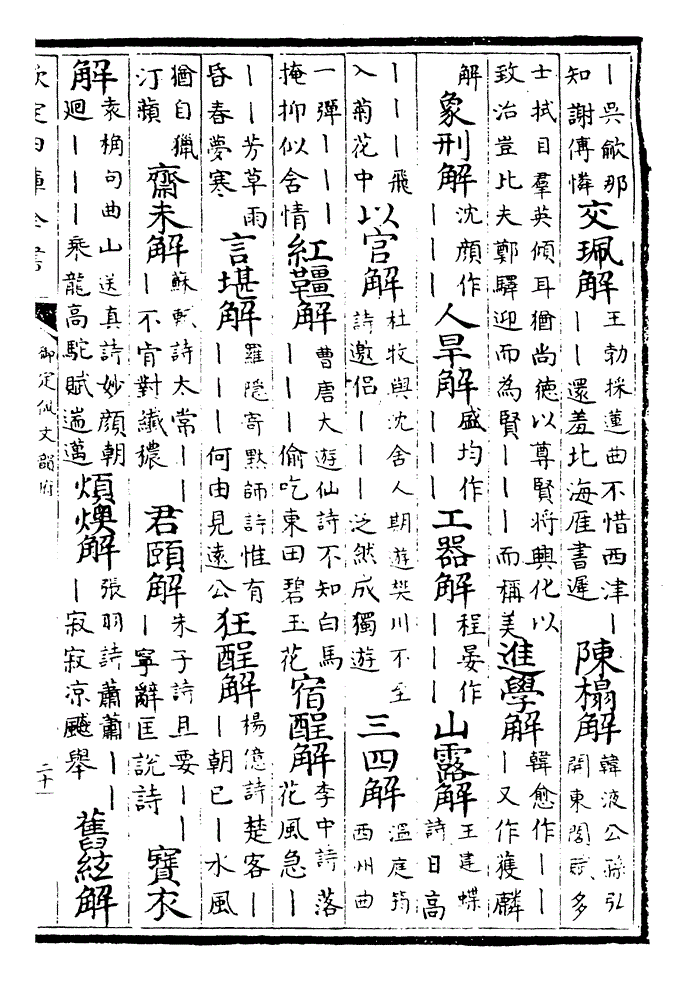 丨吳歈那知謝傅憐交珮解王勃採蓮曲不惜西津丨丨丨還羞北海雁書遲陳榻解韓液公孫弘開東閣賦多
士拭目羣英傾耳猶尚德以尊賢將興化以致治豈比夫鄭驛迎而為賢丨丨丨而稱美進學解韓愈作丨丨丨又作獲麟
解象刑解沈顔作丨丨丨人旱解盛均作丨丨丨工器解程晏作丨丨丨山露解王建蝶詩日高
丨丨丨飛入菊花中以官解杜牧與沈舍人期遊樊川不至詩邀侶丨丨丨泛然成獨遊三四解溫庭筠西州曲
一彈丨丨丨掩抑似含情紅韁解曹唐大遊仙詩不知白馬丨丨丨偷吃東田碧玉花宿酲解李中詩落花風急丨
丨丨芳草雨昏春夢寒言堪解羅隱寄黙師詩惟有丨丨丨何由見遠公狂酲解楊億詩楚客丨丨朝已丨水風
猶自獵汀蘋齋未解蘇軾詩太常丨丨丨不肯對纖穠君頤解朱子詩且要丨丨丨寧辭匡說詩寶衣
解袁桷句曲山送真詩妙顔朝廻丨丨丨乘龍高駝賦遄邁煩燠解張羽詩蕭蕭丨丨丨寂寂凉飇舉舊絃解
欽定四庫全書
御定佩文韻府
二十